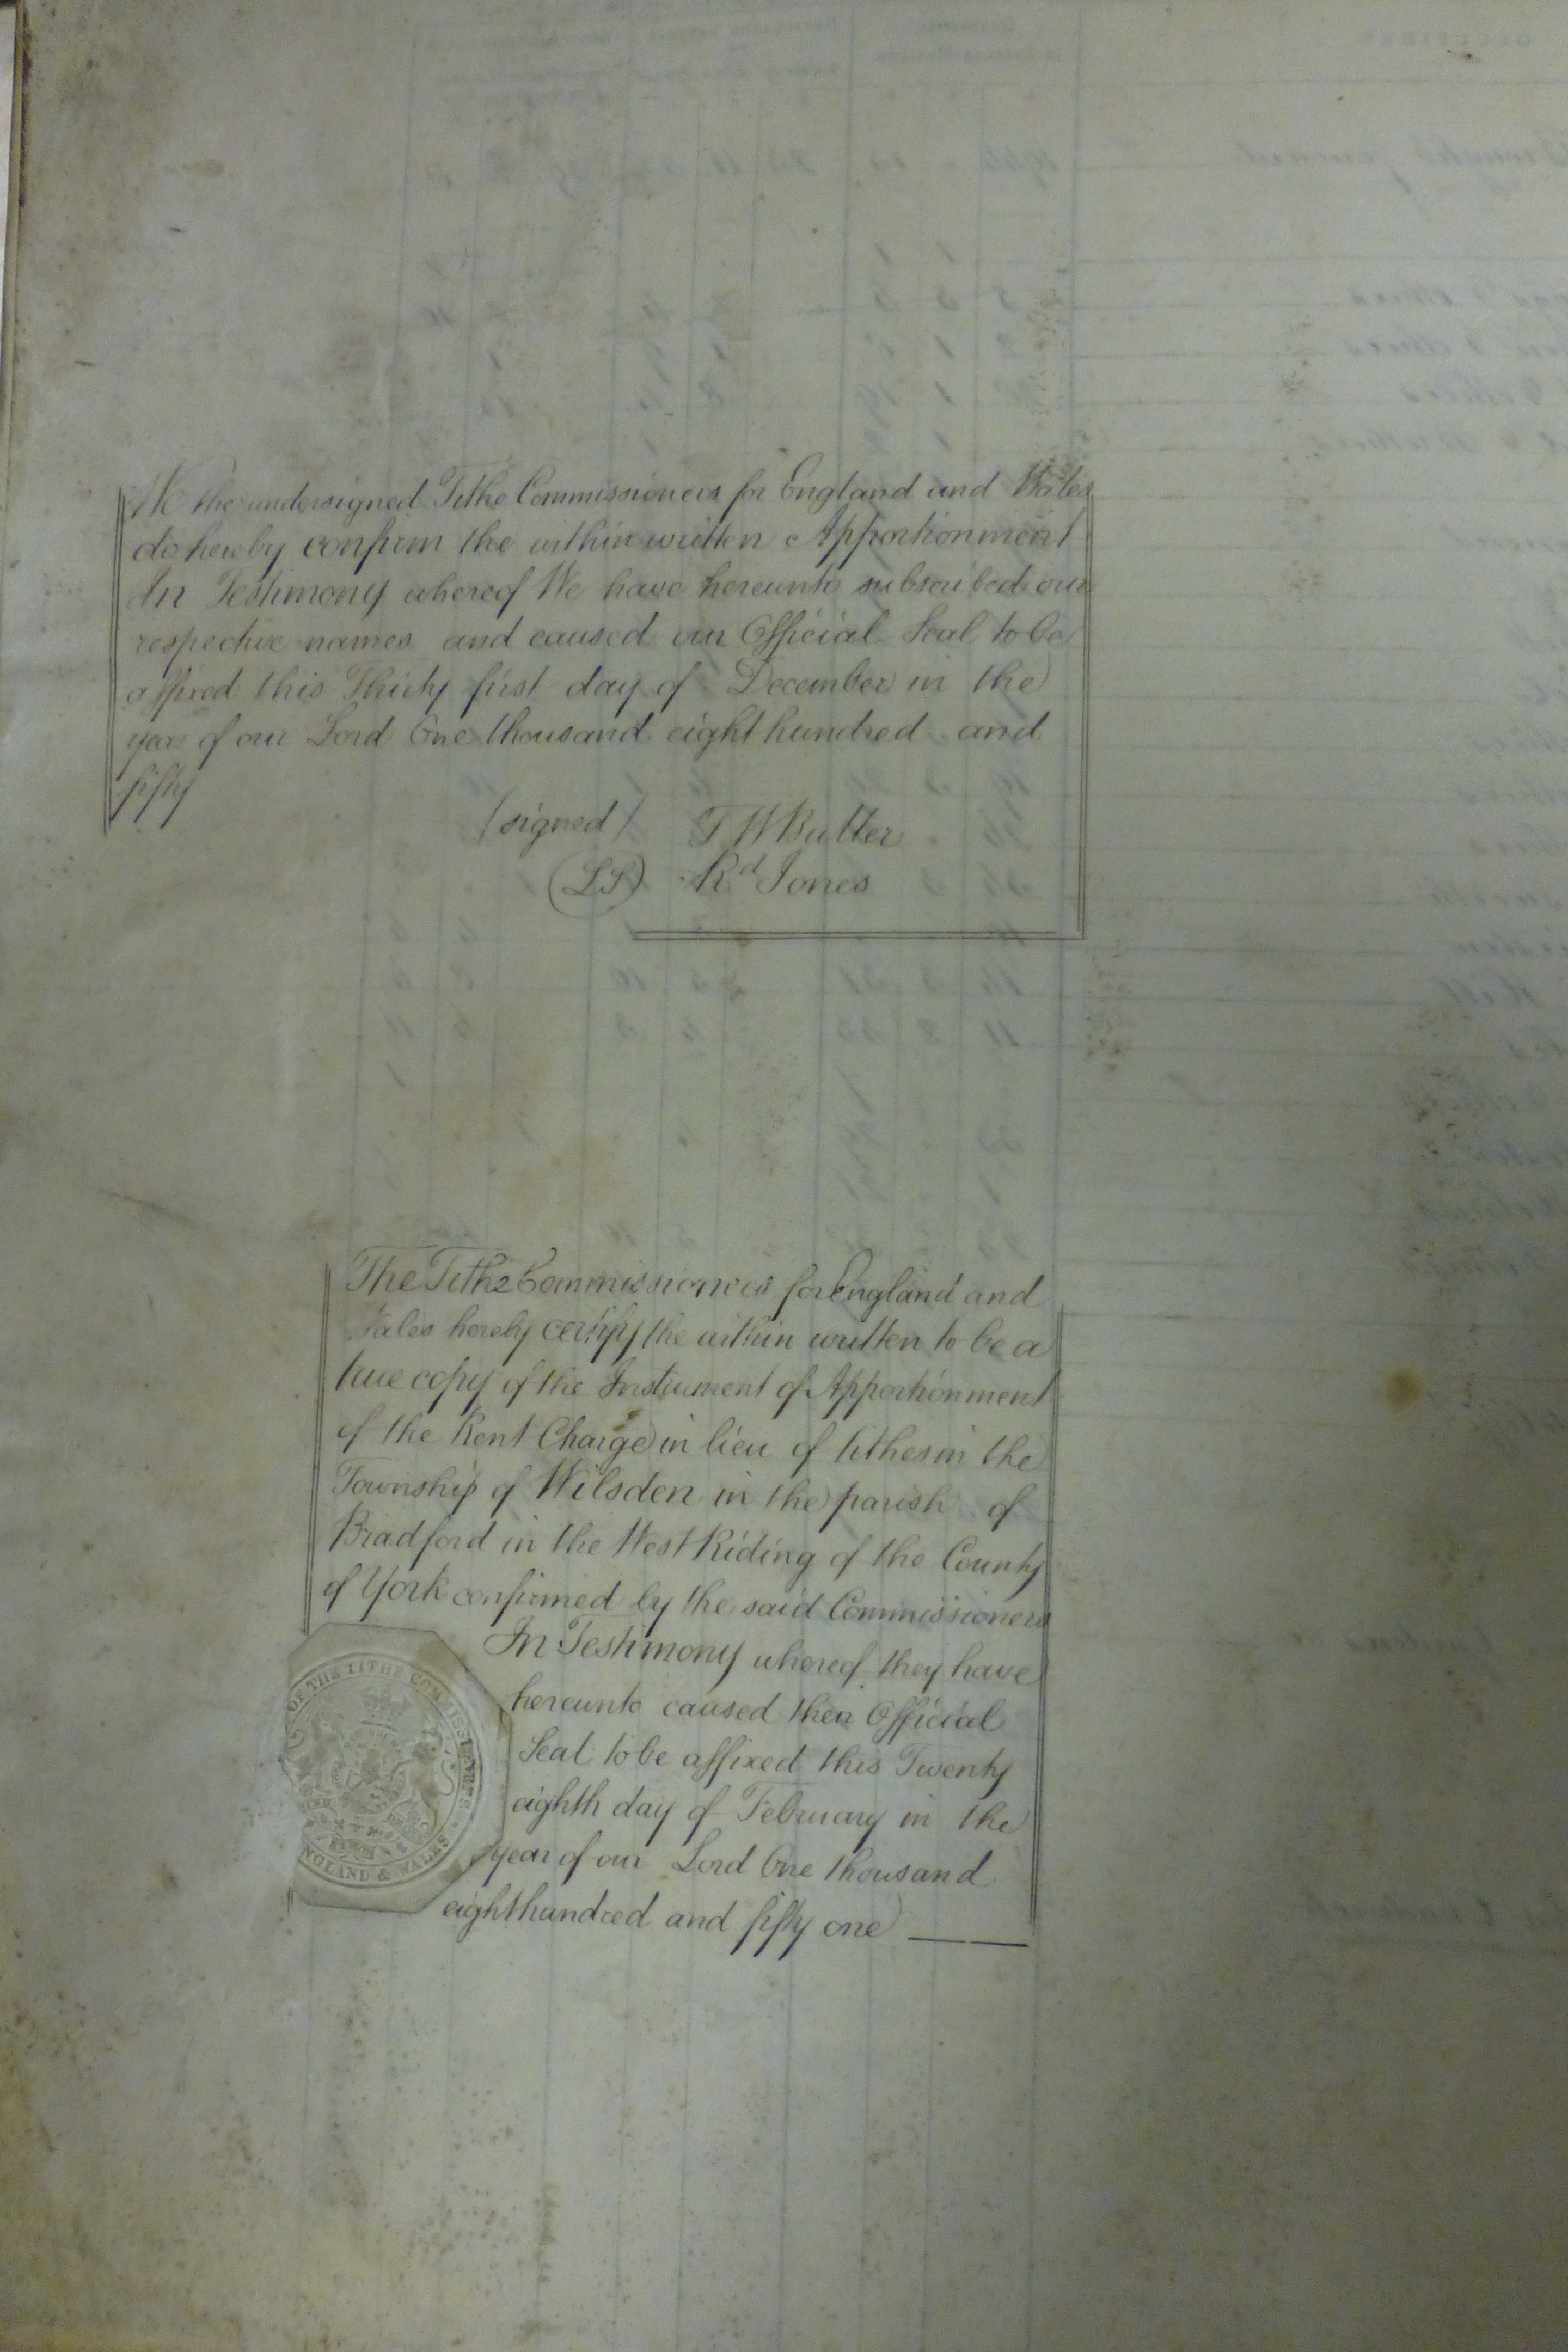 We the undersigned Tithe Commissioners for England and Wales
do hereby confirm the within written Apportionment
In Testimony whereof We have hereunto subscribed our
respective names and caused our Official Seal to be
affixed this Thirty first day of December in the
year of our Lord One thousand eight hundred and
fifty
(signed) T W Buller
(LS) Rd Jones
The Tithe Commissioners for England and
Wales hereby certify the within written to be a
true copy of the Instrument of Apportionment
of the Rent Charge in lieu of tithes in the
Township of Wilsden in the parish of
Bradford in the West Riding of the County
of York confirmed by the said Commissioners
In Testimony whereof they have
hereunto caused their Official
Seal to be affixed this Twenty
eighth day of February in the
year of our Lord One thousand
eight hundred and fifty one
OF THE TITHE COMMISSIONERS
ENGLAND & WALES